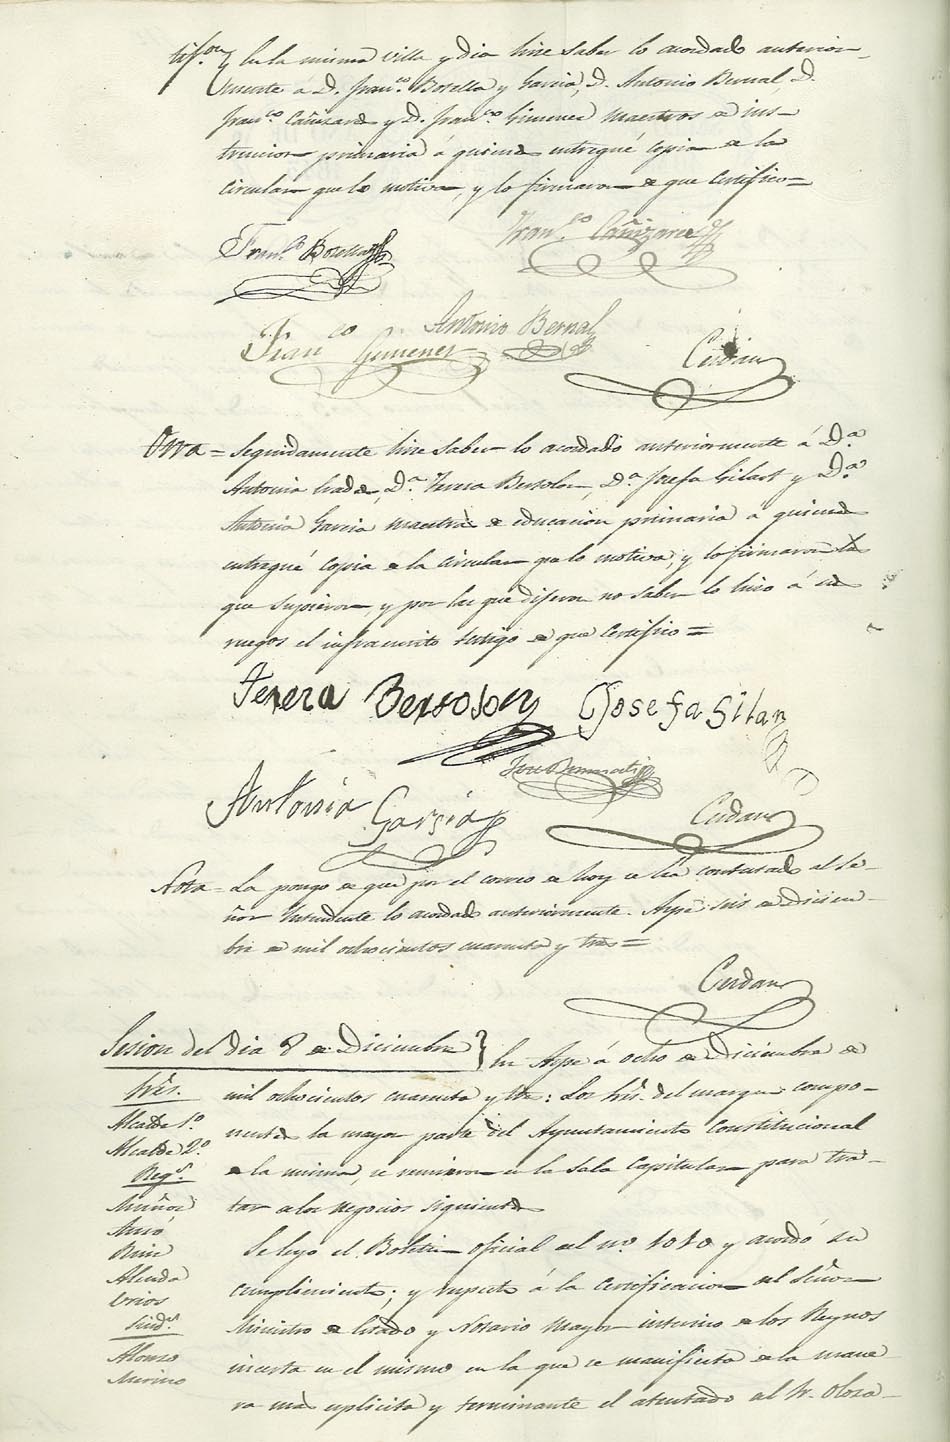 Notif.on En la misma villa y dia hise saber lo acordado anterior-
mente á D. Fran.co Botella y Garcia, D. Antonio Bernal, D.
Fran.co Cañizares y D. Fran.co Gimenez Maestros de ins-
truccion primaria á quienes entregué copia de la
circular que lo motiva, y lo firmaron de que certifico=
Fran.co Botella
Fran.co Cañizares
Antonio Bernal
Fran.co Gimenez
Cerdan
Otra = Seguidamente hise saber lo acordado anteriormente á D.a
Antonia, D.a Teresa Bersolon, D.a Josefa Gilart y D.a
Antonia Garcia maestras de educacion primaria a quienes
entregué copia de la circular que lo motiva, y lo firmaron las
que supieron, y por las que dijeron no saber lo hiso á sus
ruegos el infrascrito testigo de que certifico=
Teresa Bersolon
Josefa Gilar
Antonia Garsia
Cerdan
Nota = La pongo de que por el correo de hoy se ha contestado al Se-
ñor Intendente lo acordado anteriormente. Aspe seis de Diciem-
bre de mil ochocientos cuarenta y tres=
Cerdan
Sesion del dia 8 de Diciembre } En Aspe á ocho de Diciembre de
Sres. mil ochocientos cuarenta y tres: Los Sres. del margen compo-
Alcalde 1.o nentes la mayor parte del Ayuntamiento Constitucional
Alcalde 2.o
Reg.s de la misma, se reunieron en la Sala Capitular para tra-
Muñoz tar de los negocios siguientes
Miró
Se leyo el Boletin oficial del n.o 1010 y acordó su
Alenda cumplimiento; y respecto á la certificacion del Señor
Sind.s Ministro de Estado y Notario Mayor interino de los Reynos
Alonso incerta en el mismo en la que se manifiesta de la mane
Merino ra mas esplicita y terminante el atentado del Sr. Oloza-